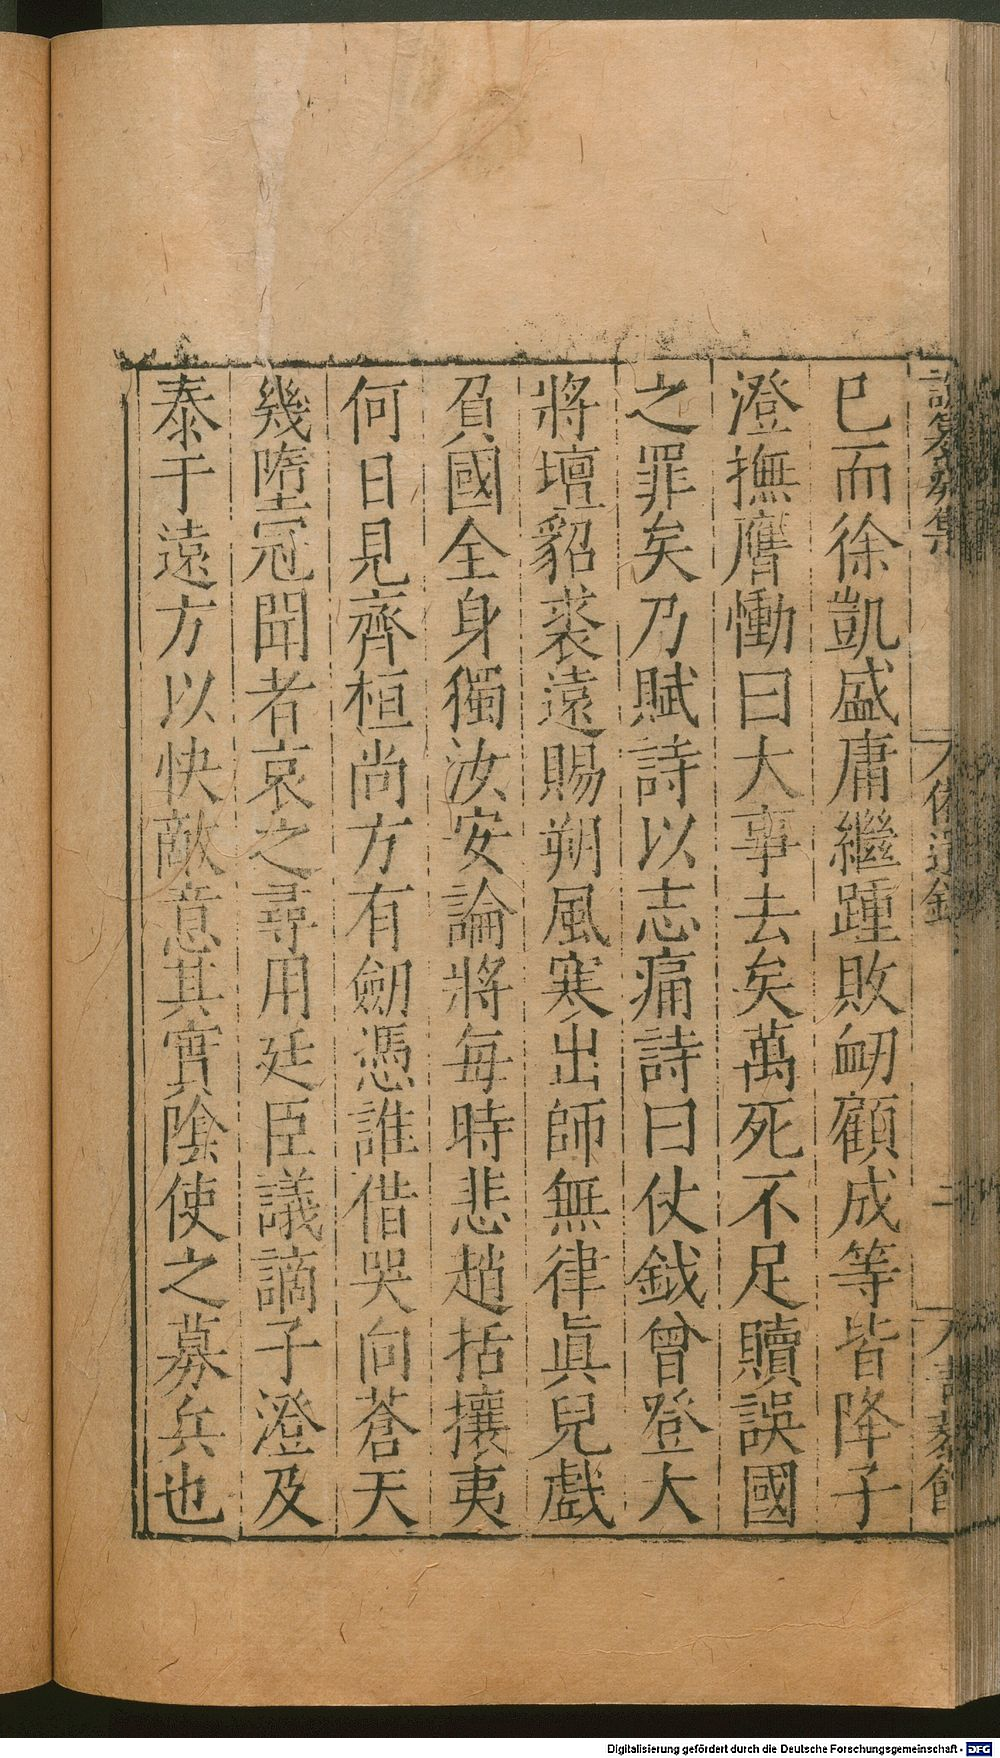 已而徐凱盛庸繼踵敗衂顧成等皆降子
澄撫膺慟曰大事去矣萬死不足贖誤國
之罪矣乃賦詩以志痛詩曰仗鉞曾登大
將壇貂裘遠賜朔風寒出師無律眞兒戲
負國全身獨汝安論將每時悲趙括攘夷
何日見齊桓尚方有劒憑誰借哭向蒼天
幾墮冠聞者哀之尋用廷臣議謫子澄及
泰于遠方以快敵意其實陰使之募兵也
Digitalisierung gefördert durch die Deutsche Forschungsgemeinschaft - DFG